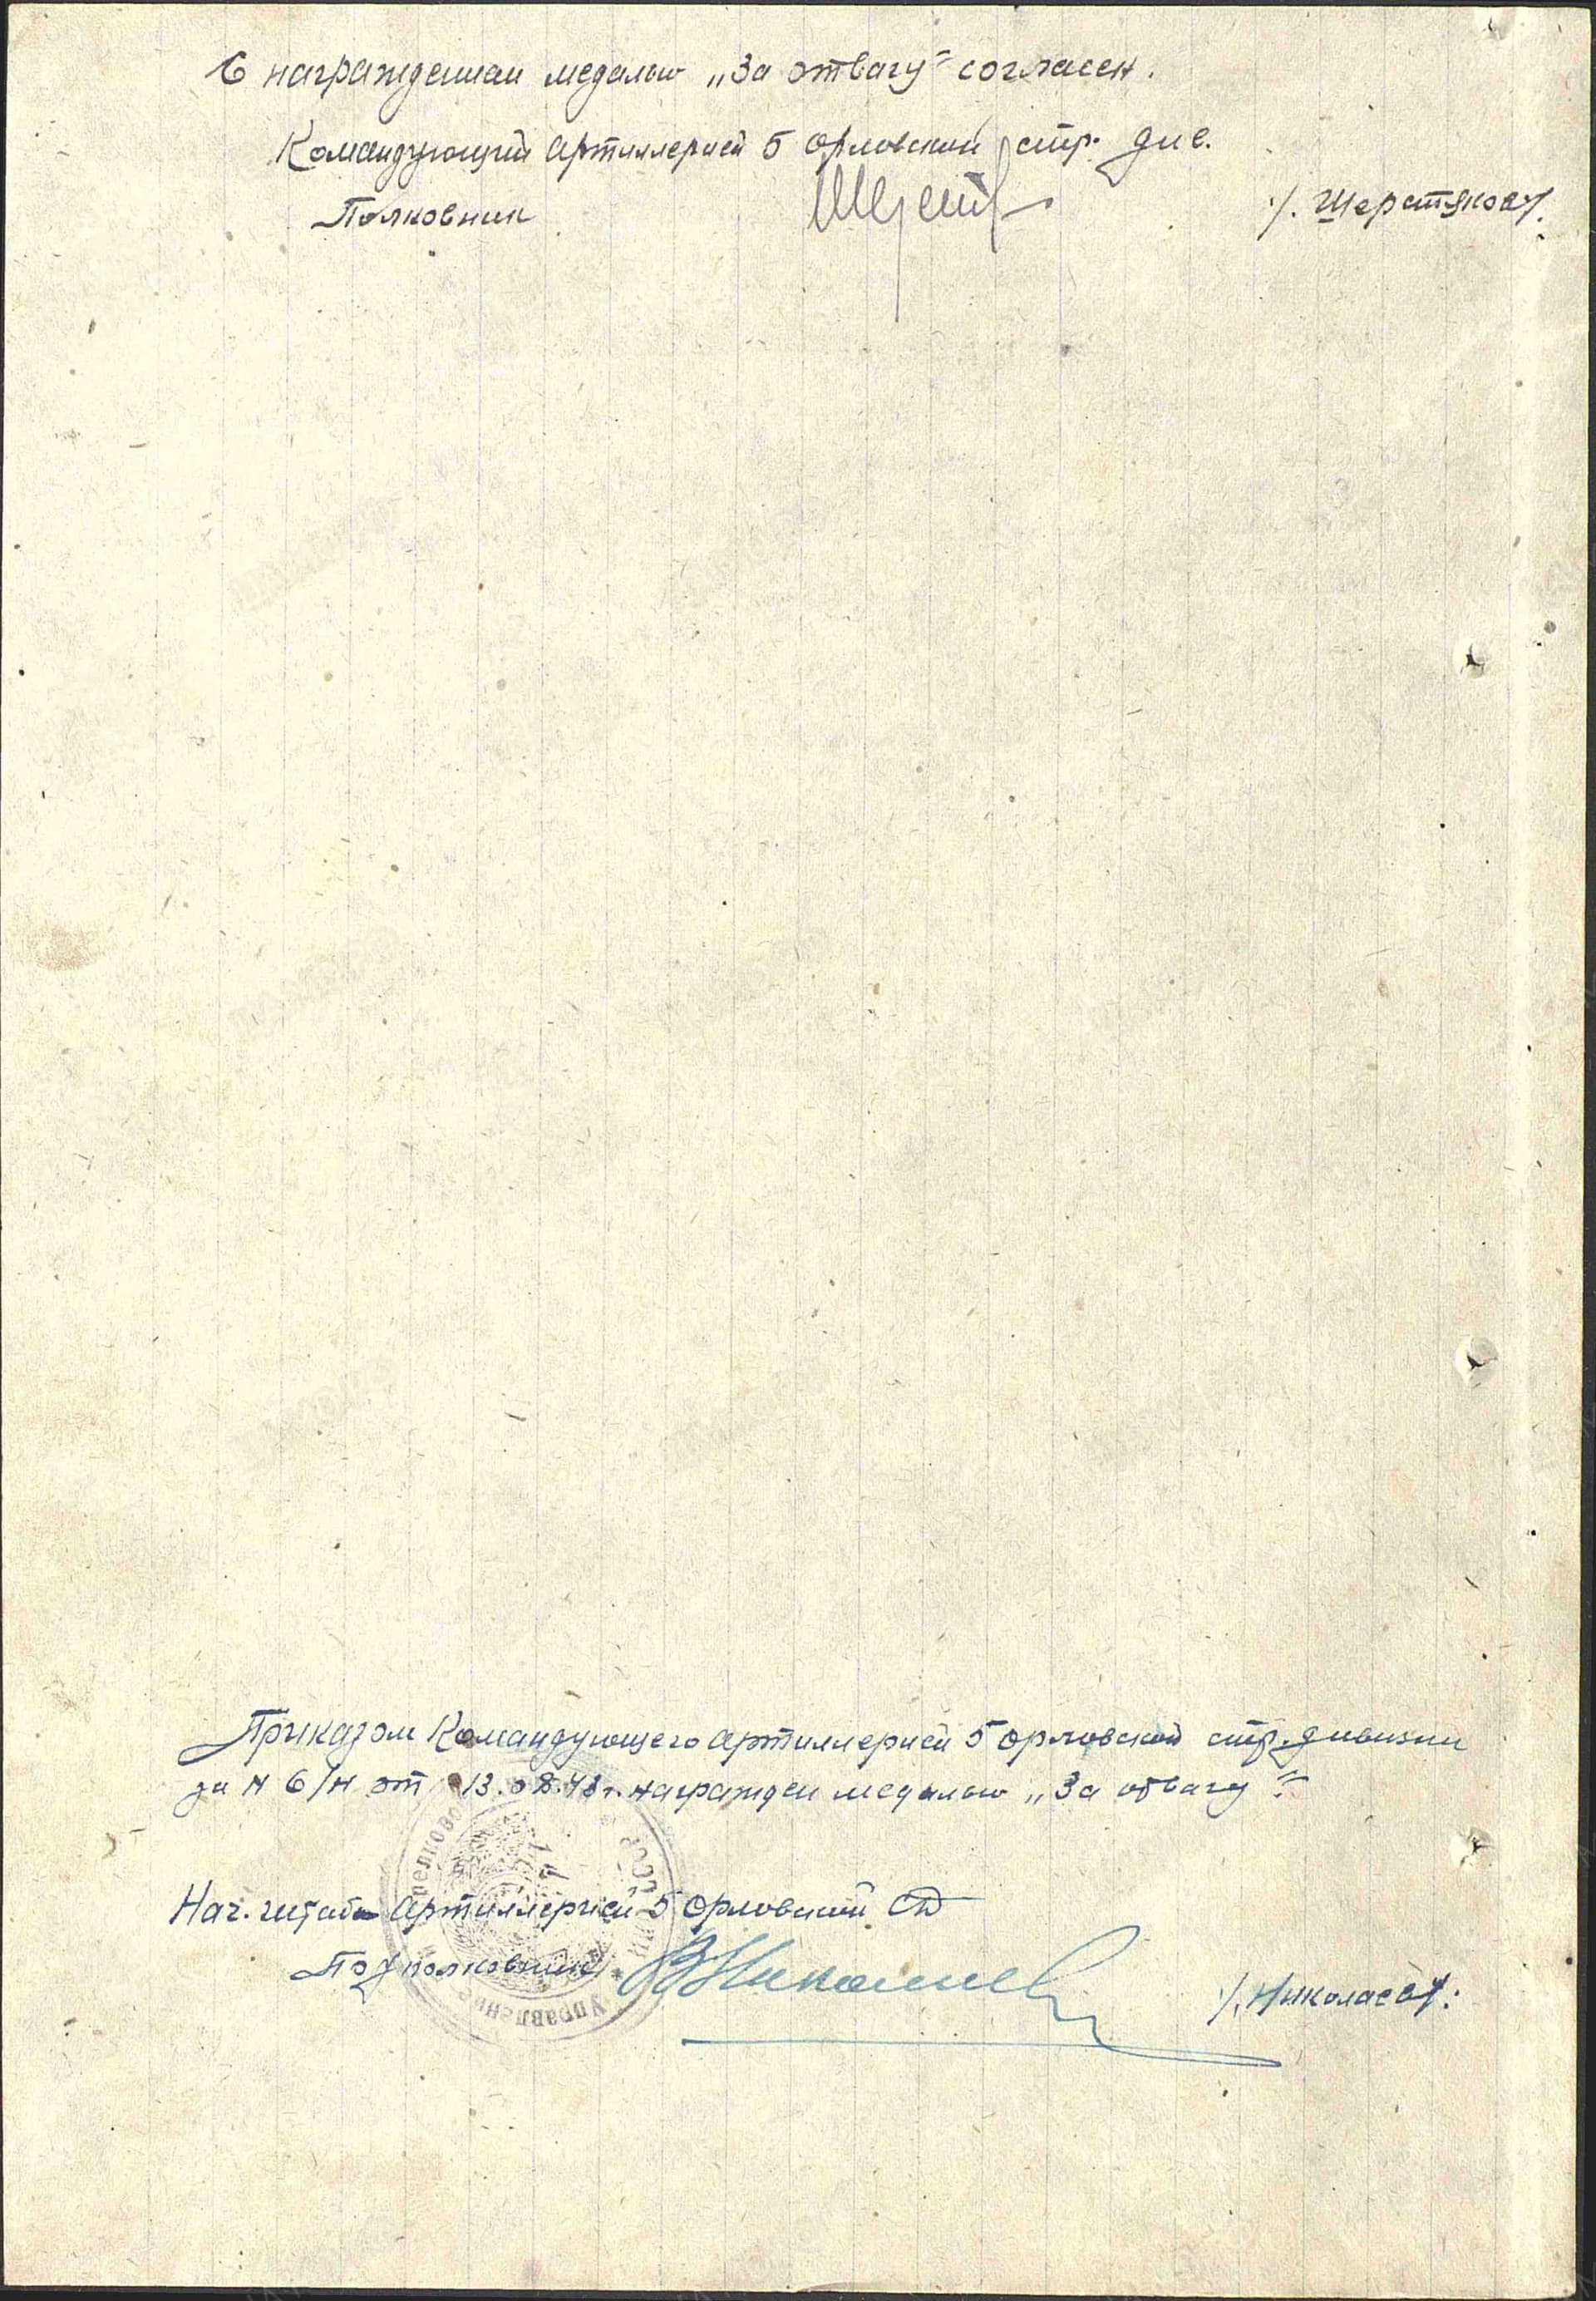 С награждением медалью „За отвагу" согласен.
Командующий артиллерией 5 орловской стр. див.
Полковник /. Шерстяков/.
Приказом Командующего артиллерией 5 орловской стр. дивизии
за N б/н от 13.08.43 г. награжден медалью „За отвагу".
Нач. штаба Артиллерией 5 Орловской СД
Подполковник /. Николаев/.
Управление